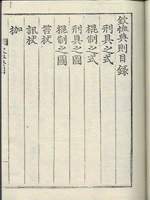 欽恤典則目錄
刑具之式
棍制之式
刑具之圖
棍制之圖
笞杖
訊杖
枷